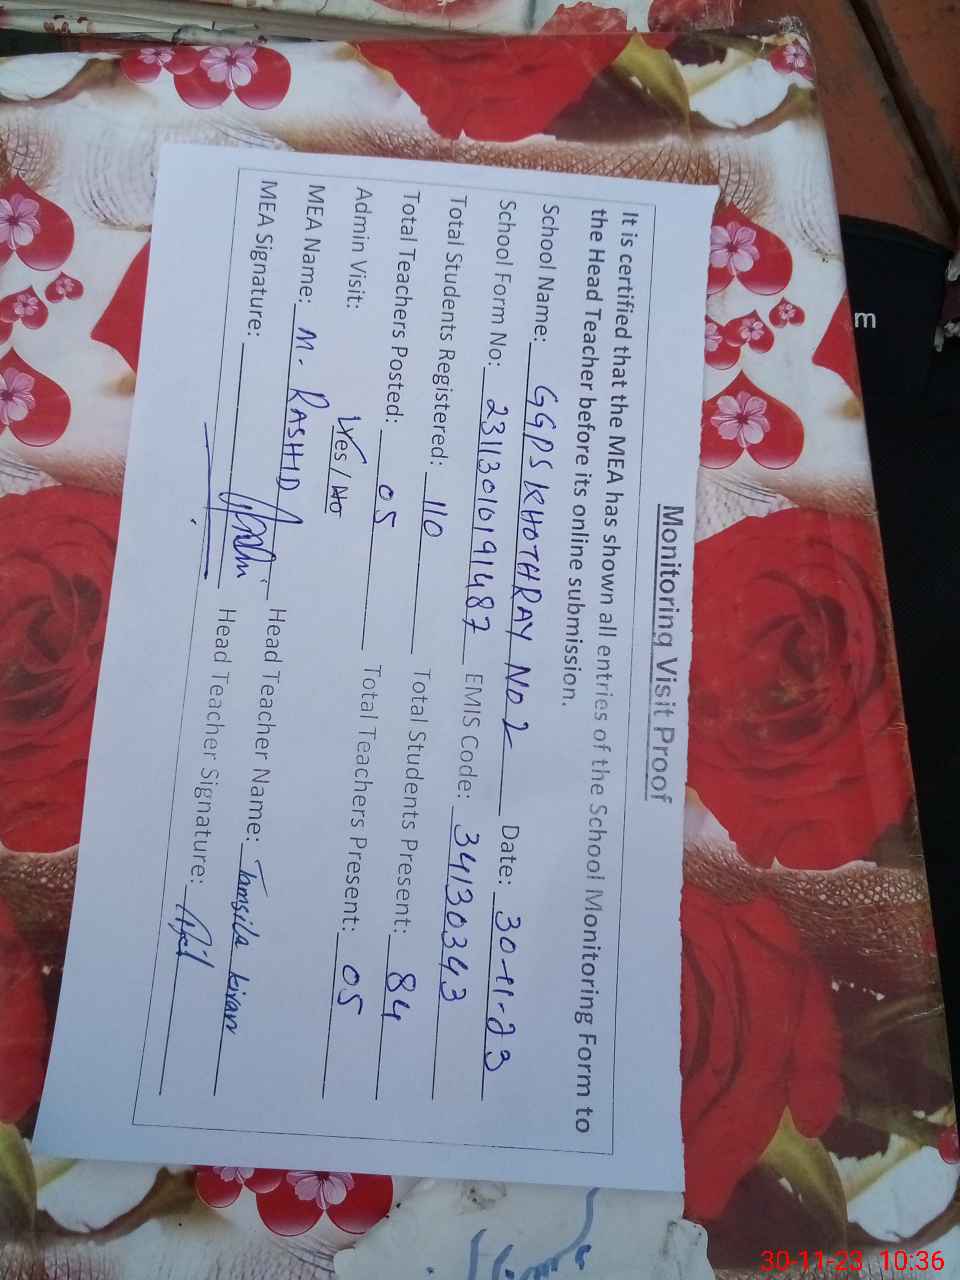 Monitoring Visit Proof
It is certified that the MEA has shown all entries of the School Monitoring Form to
the Head Teacher before its online submission.
School Name: GGPS KHOTHRAY NO 2 Date: 30-11-23
School Form No: 23113010191487 EMIS Code: 34130343
Total Students Registered: 110 Total Students Present: 84
Total Teachers Posted: 05 Total Teachers Present: 05
Admin Visit: Yes / No
MEA Name: M. RASHID Head Teacher Name: Tamsila kiran
MEA Signature: Head Teacher Signature:
m
30-11-23 10:36